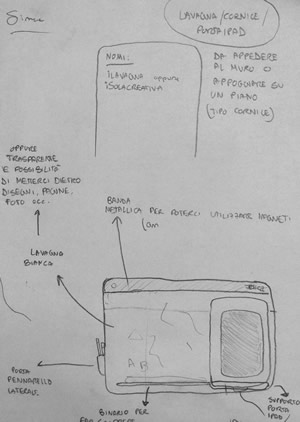 LAVAGNA/CORNICE/
PORTAIPAD
NOMI:
iLAVAGNA oppure
iSOLACREATIVA
DA APPEDERE
AL MURO O
APPOGGIATE SU
UN PIANO
(TIPO CORNICE)
OPPURE
TRASPARENTE
E POSSIBILITÀ
DI METTERCI DIETRO
DISEGNI, PAGINE,
FOTO ECC.
BANDA
METALLICA PER POTERCI UTILIZZARE MAGNETI
LAVAGNA
BIANCA
A B
PORTA
PENNARELLO
LATERALE.
BINARIO PER
SUPPORTO
PORTA
IPAD/